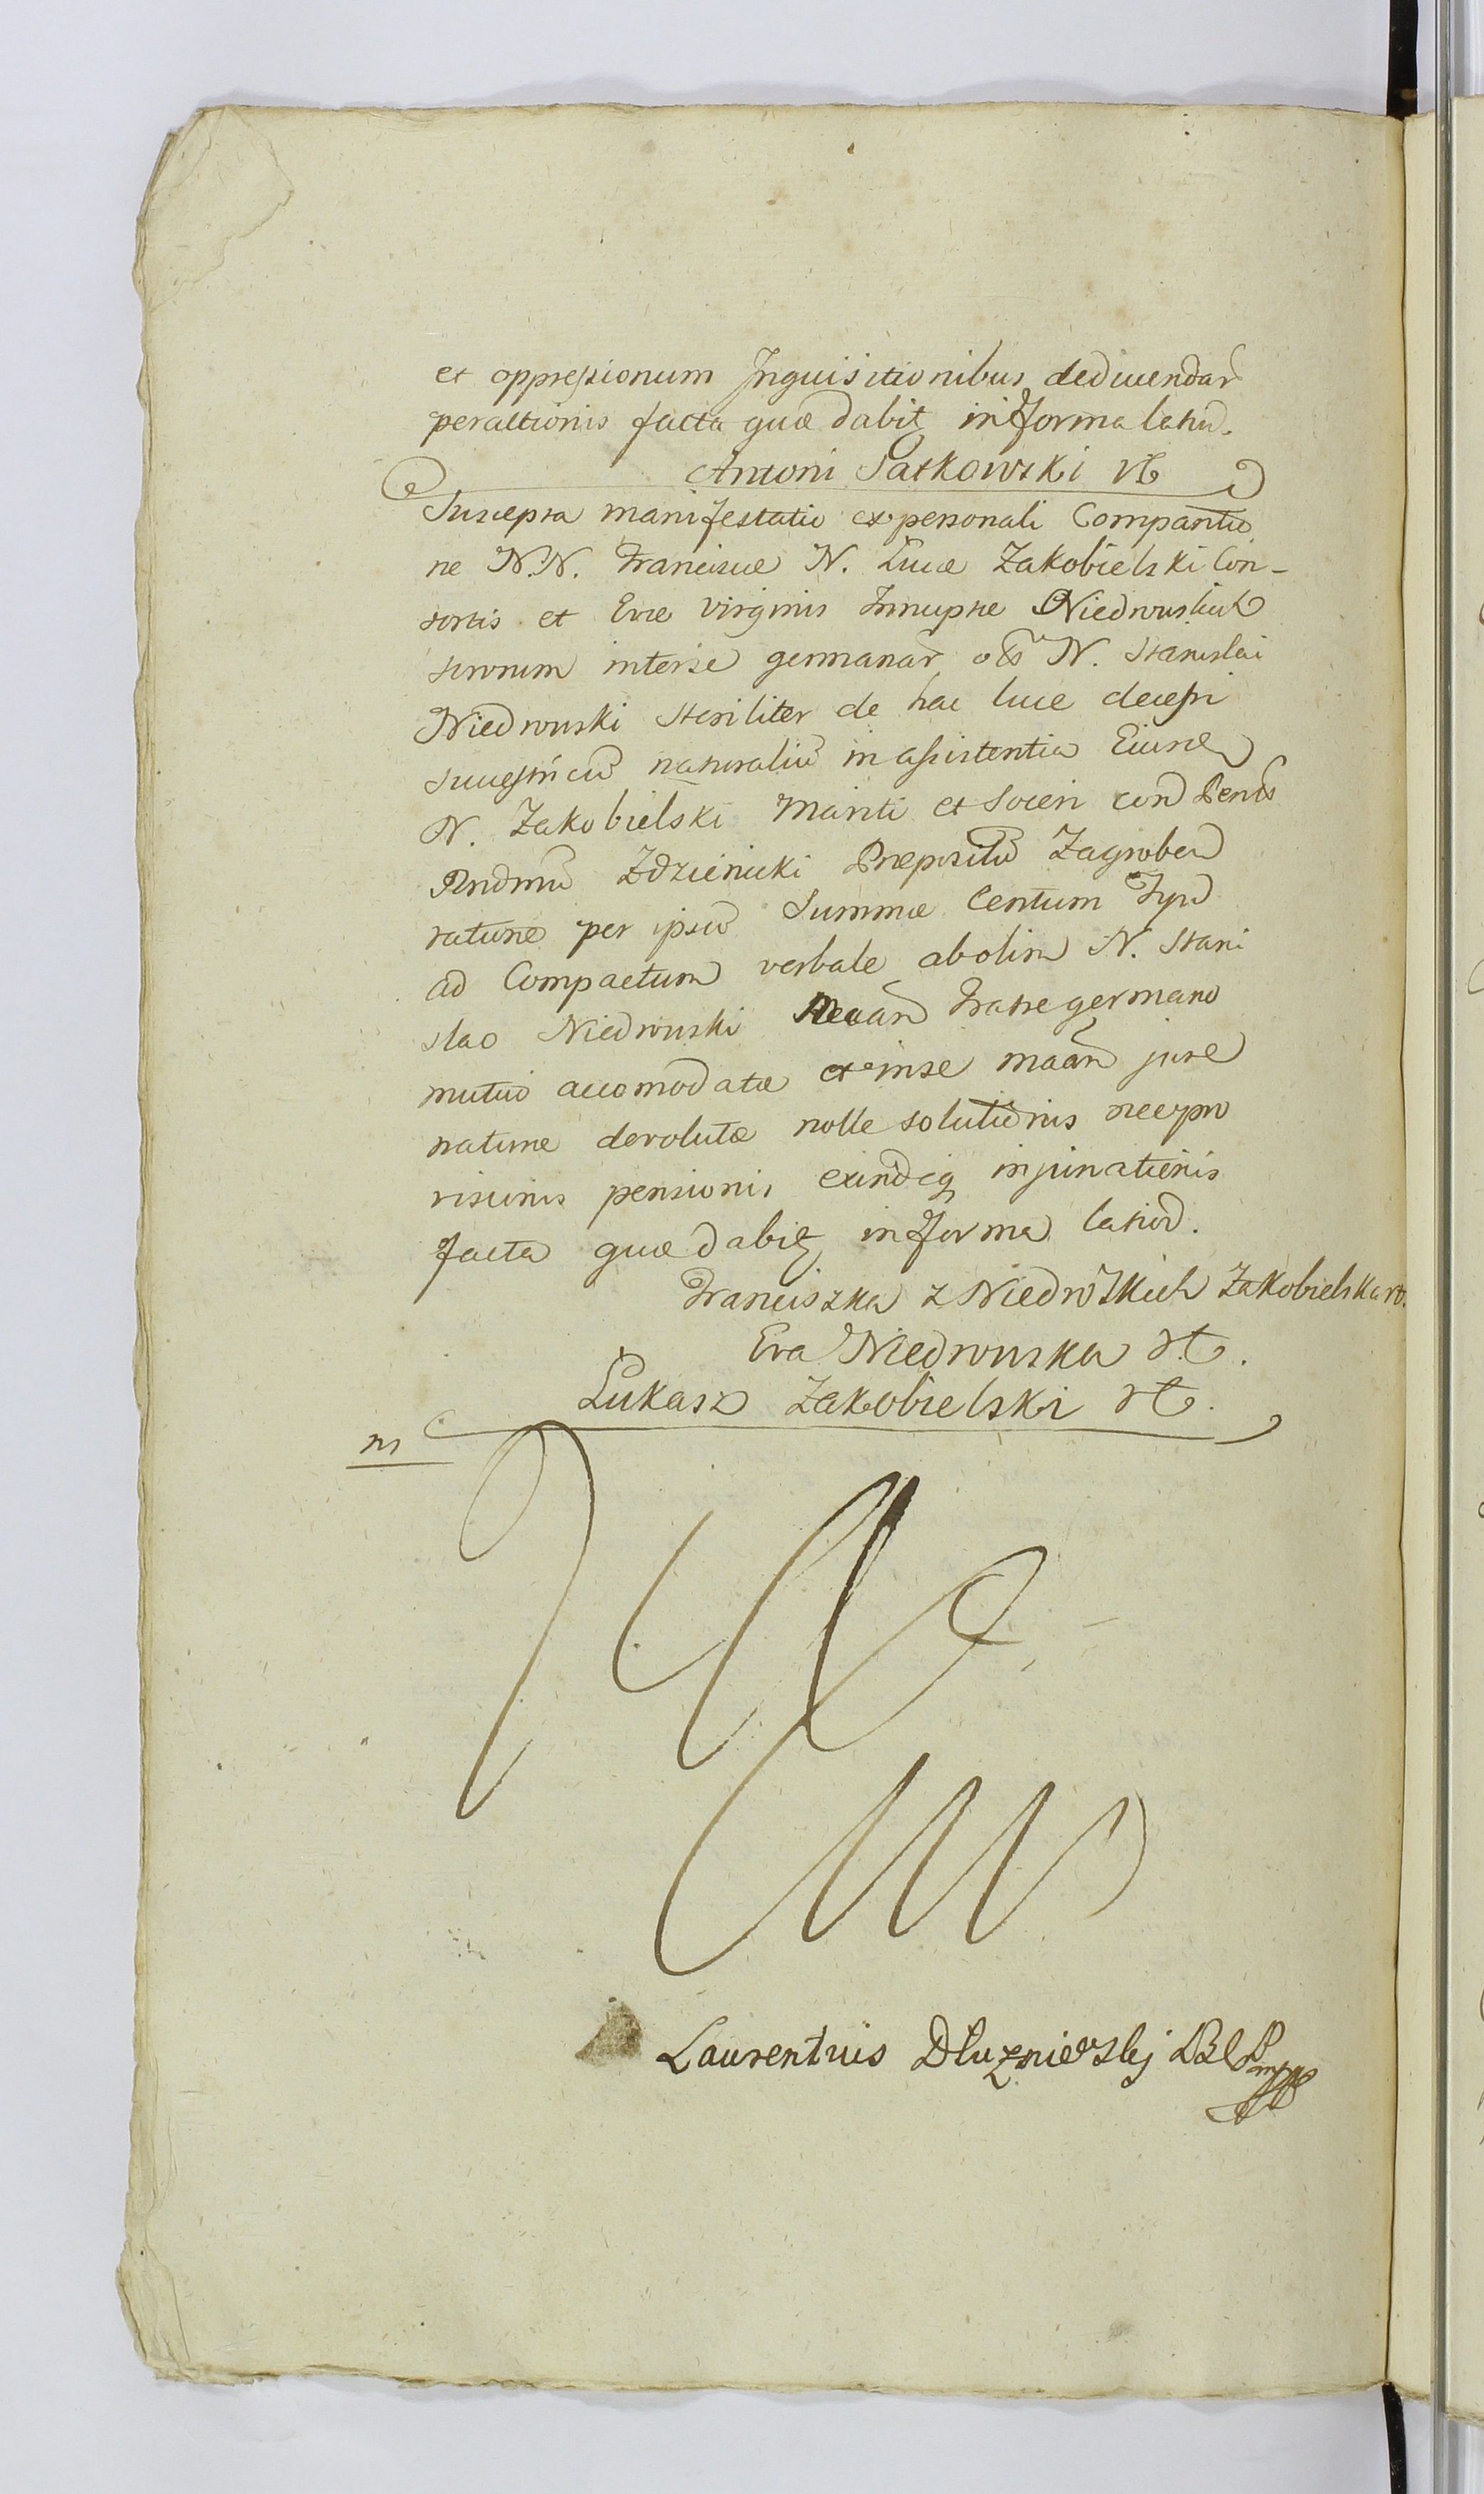 et oppressionum Inquisitionibus deducendar
peractionis facta quæ dabit in Forma latiu.
Antoni Patkowski
Suscepta manifestatio ex personali Comparitio
ne N.N. Franciscæ N. Lucæ Zakobielski Con-
sortis et Evæ Virginis Innuptæ Niedrowskich
sororum inter se germanar N. Stanislai
Niedrowski steriliter de hac luce decessi
successricu naturaliu in assistentia Eiusd
N. Zakobielski Mariti et Soceri con
Rndmu Zdzienicki Præpositu Zagroben
ratione per ipsu Summæ Centum
ad Compactum verbale abolim N. Stani
slao Niedrowski fratre germano
mutuo accomodatæ et in se maan jure
naturæ devolutæ nolle solutionis nec pro
visionis pensionis exindeq injuriationis
facta quæ dabit in Forma latiod.
Franciszka z Niedrowskich Zakobielska
Eva Niedrowska
Łukasz Zakobielski
m
Laurentius Dluzniewskj